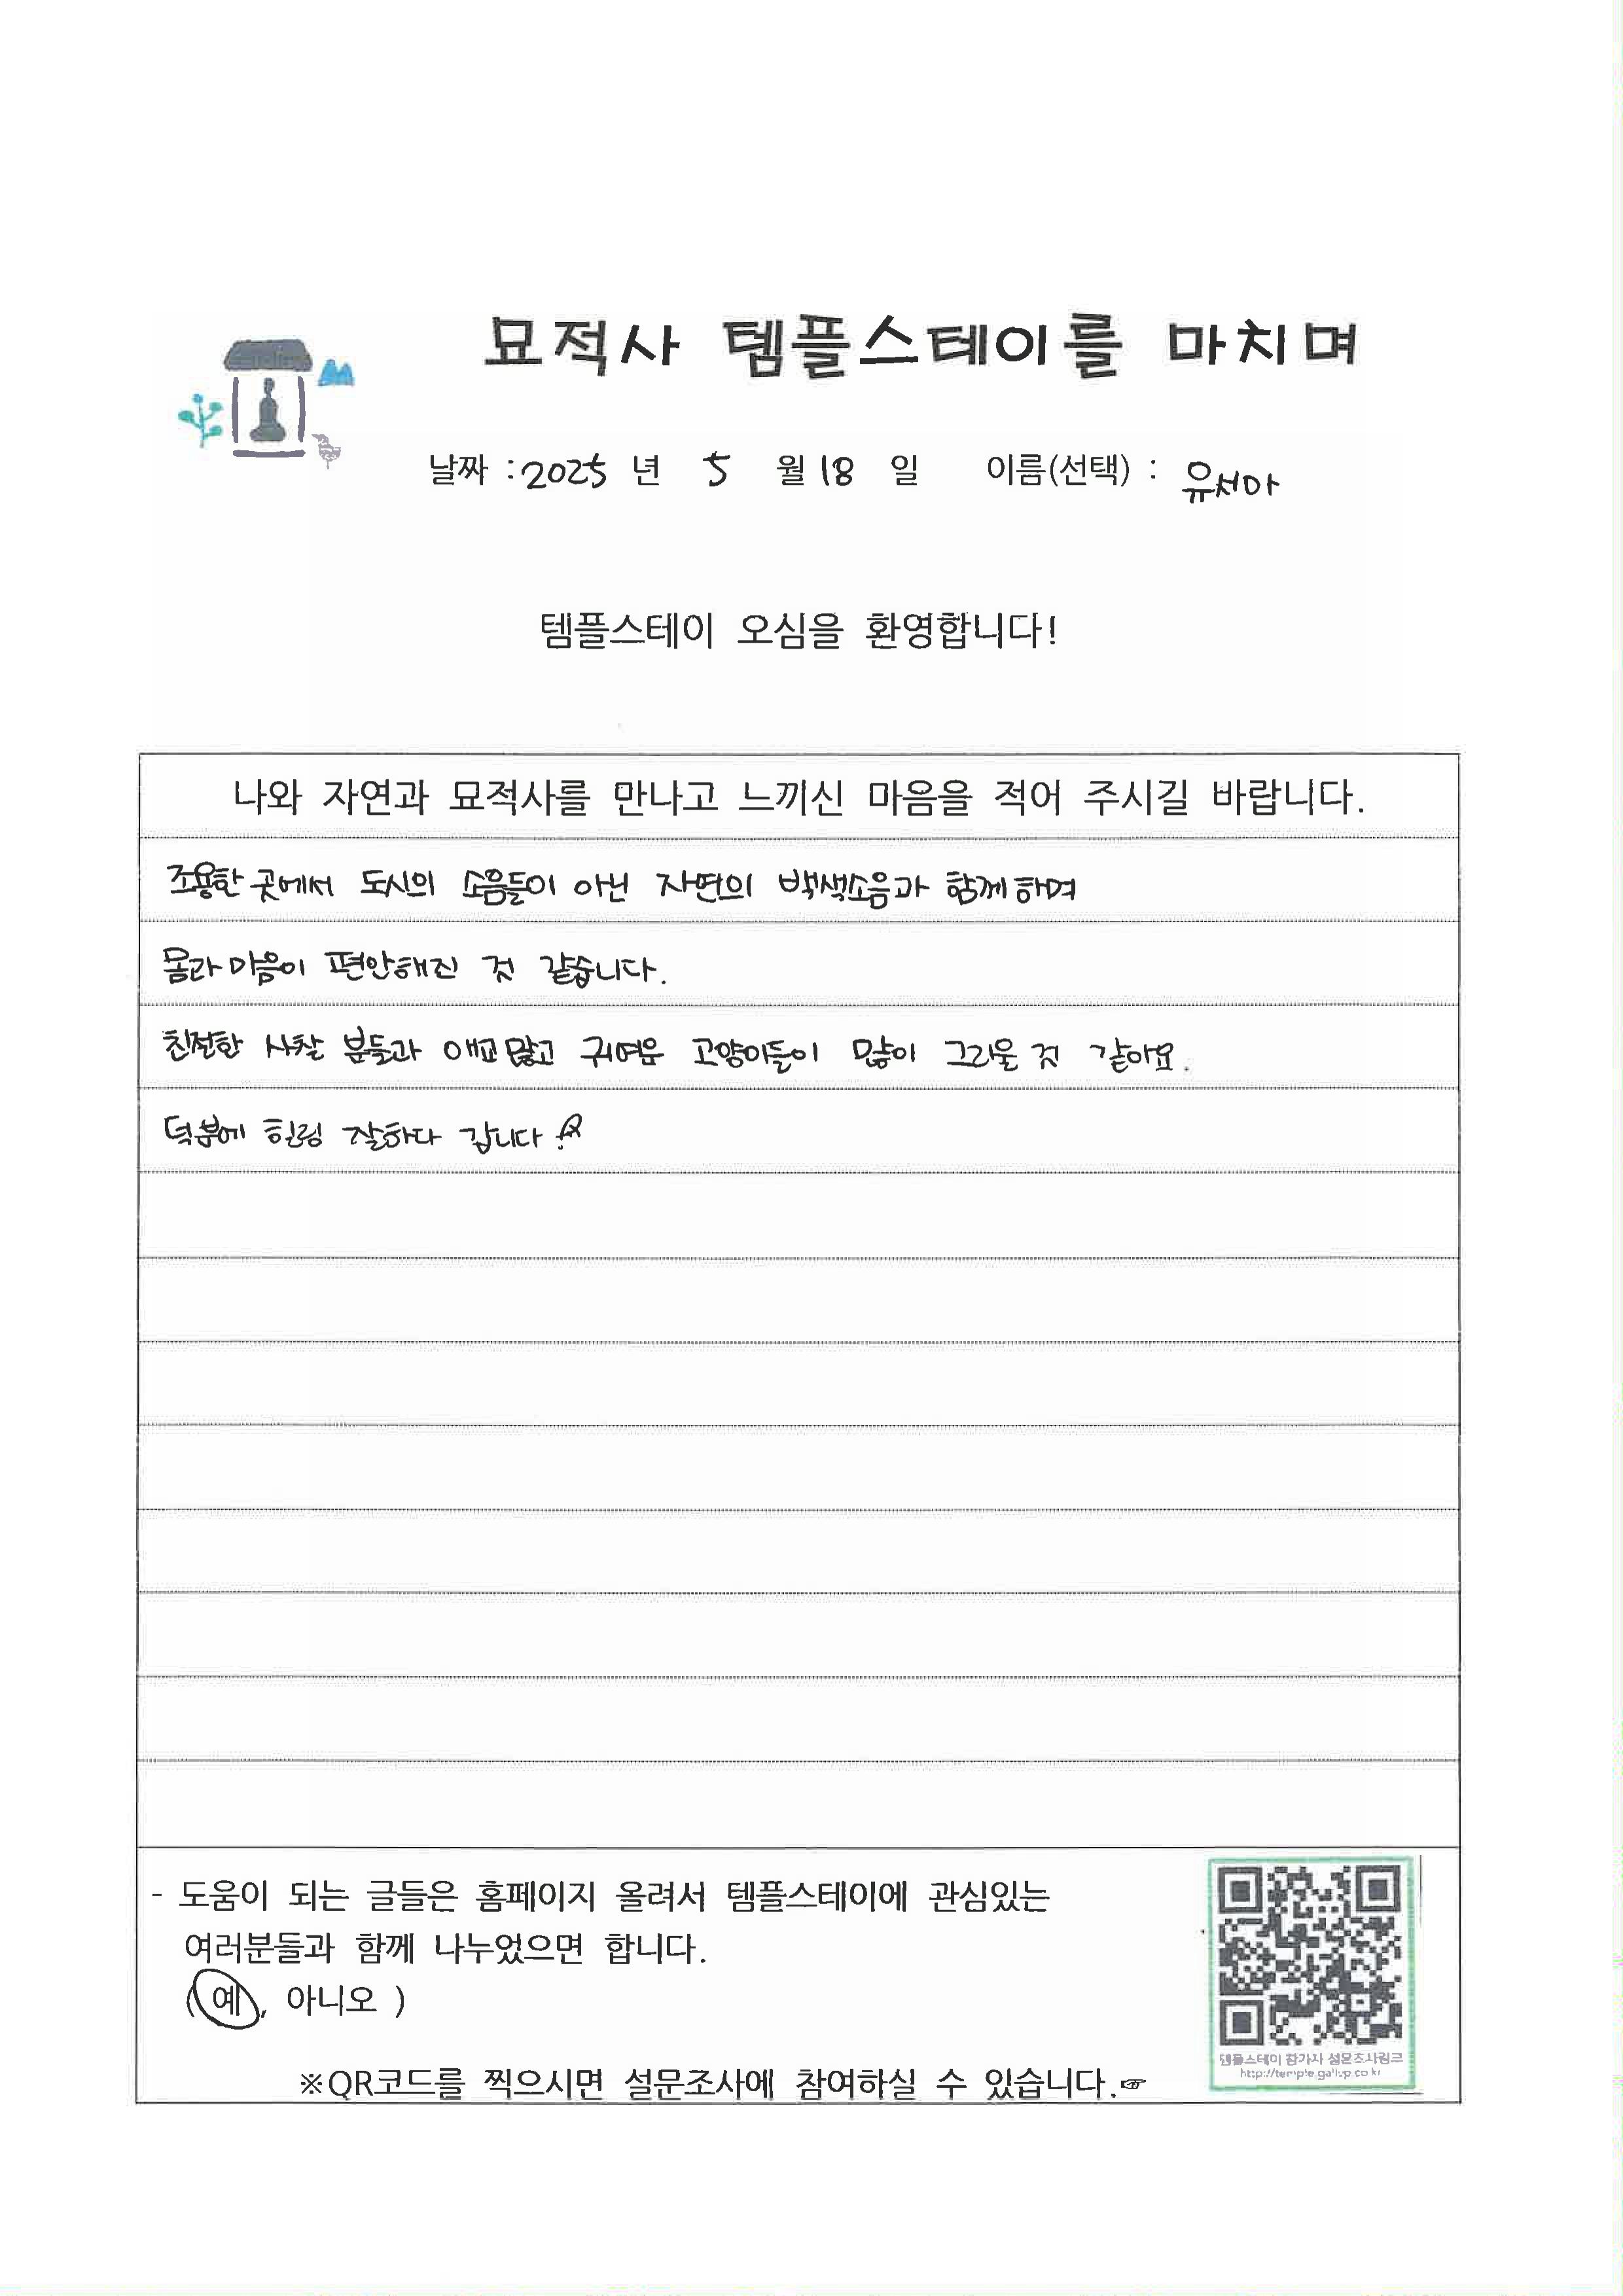 묘적사 템플스테이를 마치며
날짜 : 2025 년 5 월 18 일 이름(선택) : 유서아
템플스테이 오심을 환영합니다!
나와 자연과 묘적사를 만나고 느끼신 마음을 적어 주시길 바랍니다.
조용한 곳에서 도시의 소음들이 아닌 자연의 백색소음과 함께하며
몸과 마음이 편안해진 것 같습니다.
친절한 사찰 분들과 애교많고 귀여운 고양이들이 많이 그리울 것 같아요.
덕분에 힐링 잘하다 갑니다
- 도움이 되는 글들은 홈페이지 올려서 템플스테이에 관심있는
여러분들과 함께 나누었으면 합니다.
(예, 아니오 )
※QR코드를 찍으시면 설문조사에 참여하실 수 있습니다.☞
템플스테이 참가자 설문조사링크
http://temple.gallup.co.kr